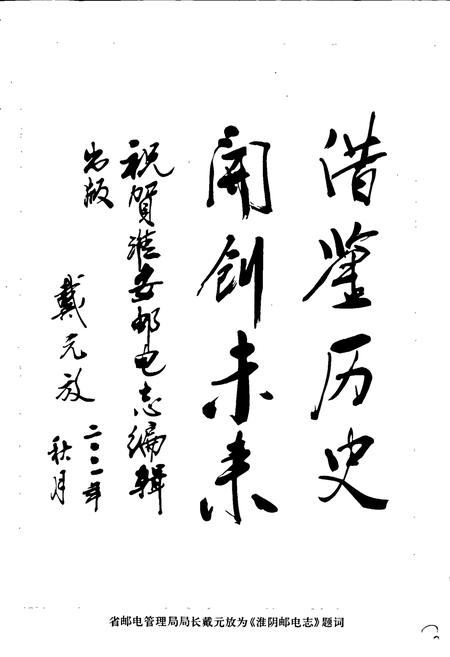 借鉴历史
開创未来
祝賀淮安邮电志编辑
出版
戴元放
二〇〇一年
秋月
省邮电管理局局长戴元放为《淮阴邮电志》题词